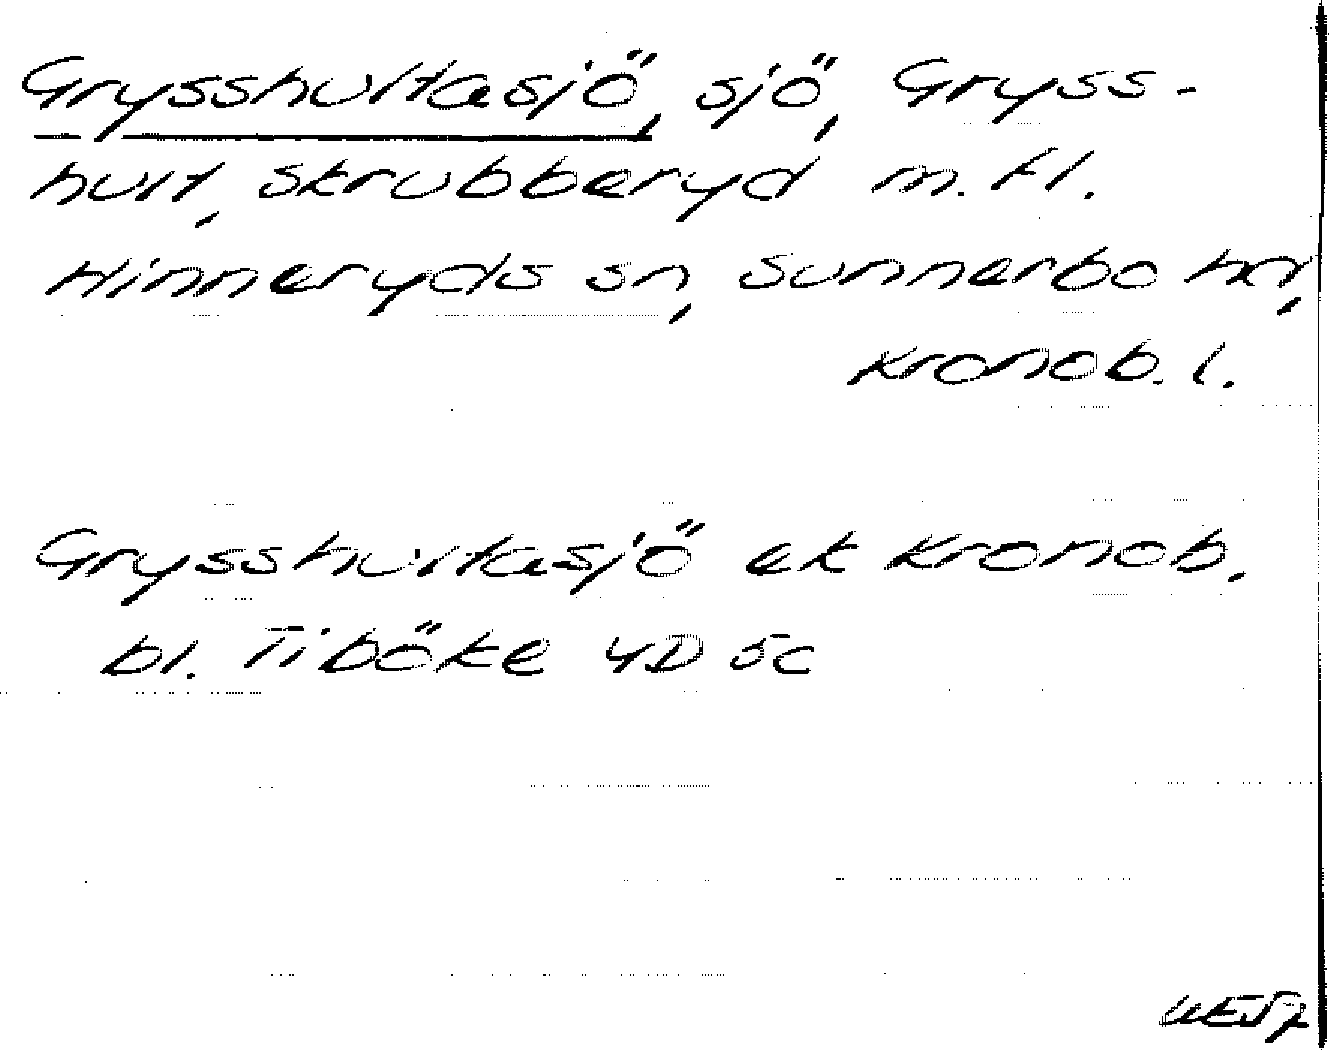 Grysshultasjö, sjö, Gryss-
hult, Skrubberyd m.fl.
Hinneryds sn, Sunnerbo hd,
Kronob. l.
Grysshultasjö ek Kronob.
bl. Tiböke 4D 5c